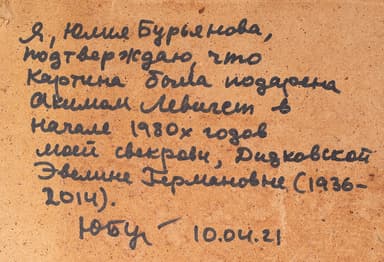 Я, Юлия Бурьянова,
подтверждаю, что
картина была подарена
Акимом Левичем в
начале 1980х годов
моей свекрови, Дидковской
Эвелине Германовне (1936-
2014).
ЮБур 10.04.21